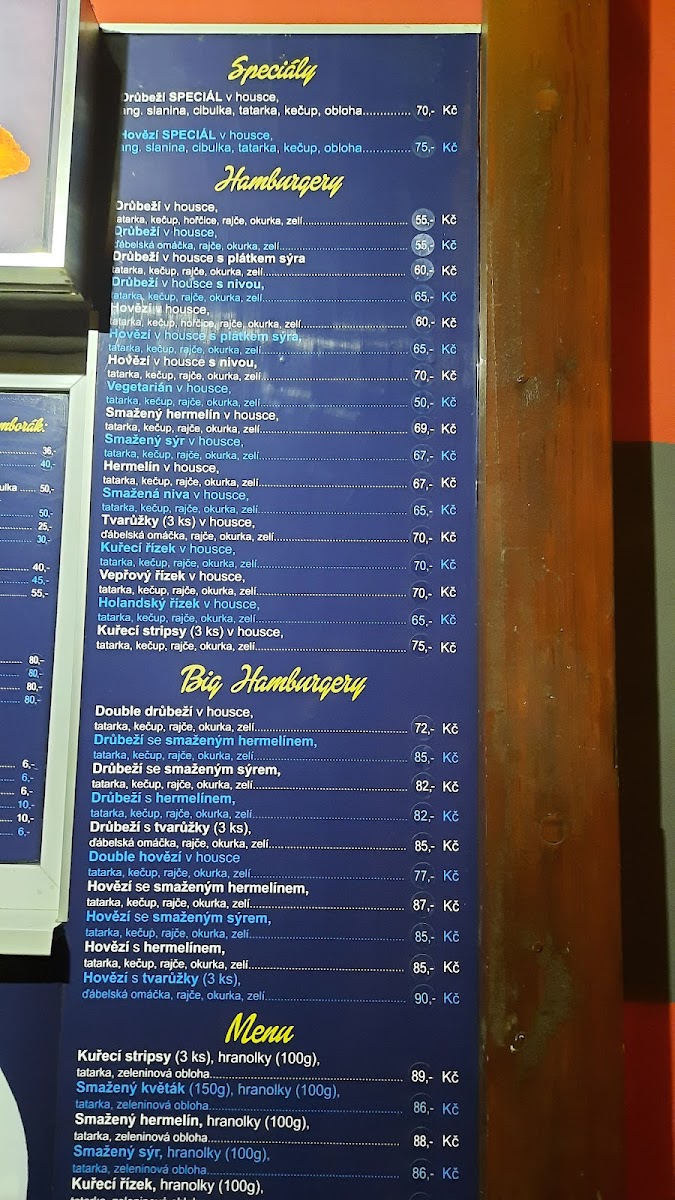 Speciály
Drůbeží SPECIÁL v housce,
ang. slanina, cibulka, tatarka, kečup, obloha............. 70,- Kč
Hovězí SPECIÁL v housce,
ang. slanina, cibulka, tatarka, kečup, obloha............. 75,- Kč
Hamburgery
Drůbeží v housce,
tatarka, kečup, hořčice, rajče, okurka, zelí............. 55,- Kč
Drůbeží v housce,
ďábelská omáčka, rajče, okurka, zelí............. 55,- Kč
Drůbeží v housce s plátkem sýra
tatarka, kečup, rajče, okurka, zelí............. 60,- Kč
Drůbeží v housce s nivou,
tatarka, kečup, rajče, okurka, zelí............. 65,- Kč
Hovězí v housce,
tatarka, kečup, hořčice, rajče, okurka, zelí............. 60,- Kč
Hovězí v housce s plátkem sýra,
tatarka, kečup, rajče, okurka, zelí............. 65,- Kč
Hovězí v housce s nivou,
tatarka, kečup, rajče, okurka, zelí............. 70,- Kč
Vegetarián v housce,
tatarka, kečup, rajče, okurka, zelí............. 50,- Kč
Smažený hermelín v housce,
tatarka, kečup, rajče, okurka, zelí............. 69,- Kč
Smažený sýr v housce,
tatarka, kečup, rajče, okurka, zelí............. 67,- Kč
Hermelín v housce,
tatarka, kečup, rajče, okurka, zelí............. 67,- Kč
Smažená niva v housce,
tatarka, kečup, rajče, okurka, zelí............. 65,- Kč
Tvarůžky (3 ks) v housce,
ďábelská omáčka, rajče, okurka, zelí............. 70,- Kč
Kuřecí řízek v housce,
tatarka, kečup, rajče, okurka, zelí............. 70,- Kč
Vepřový řízek v housce,
tatarka, kečup, rajče, okurka, zelí............. 70,- Kč
Holandský řízek v housce,
tatarka, kečup, rajče, okurka, zelí............. 65,- Kč
Kuřecí stripsy (3 ks) v housce,
tatarka, kečup, rajče, okurka, zelí............. 75,- Kč
Big Hamburgery
Double drůbeží v housce,
tatarka, kečup, rajče, okurka, zelí............. 72,- Kč
Drůbeží se smaženým hermelínem,
tatarka, kečup, rajče, okurka, zelí............. 85,- Kč
Drůbeží se smaženým sýrem,
tatarka, kečup, rajče, okurka, zelí............. 82,- Kč
Drůbeží s hermelínem,
tatarka, kečup, rajče, okurka, zelí............. 82,- Kč
Drůbeží s tvarůžky (3 ks),
ďábelská omáčka, rajče, okurka, zelí............. 85,- Kč
Double hovězí v housce
tatarka, kečup, rajče, okurka, zelí............. 77,- Kč
Hovězí se smaženým hermelínem,
tatarka, kečup, rajče, okurka, zelí............. 87,- Kč
Hovězí se smaženým sýrem,
tatarka, kečup, rajče, okurka, zelí............. 85,- Kč
Hovězí s hermelínem,
tatarka, kečup, rajče, okurka, zelí............. 85,- Kč
Hovězí s tvarůžky (3 ks),
ďábelská omáčka, rajče, okurka, zelí............. 90,- Kč
Menu
Kuřecí stripsy (3 ks), hranolky (100g),
tatarka, zeleninová obloha............. 89,- Kč
Smažený květák (150g), hranolky (100g),
tatarka, zeleninová obloha............. 86,- Kč
Smažený hermelín, hranolky (100g),
tatarka, zeleninová obloha............. 88,- Kč
Smažený sýr, hranolky (100g),
tatarka, zeleninová obloha............. 86,- Kč
Kuřecí řízek, hranolky (100g),
tatarka, zeleninová obloha
36,-
40,-
50,-
50,-
25,-
30,-
40,-
45,-
55,-
80,-
80,-
80,-
80,-
6,-
6,-
6,-
10,-
10,-
6,-